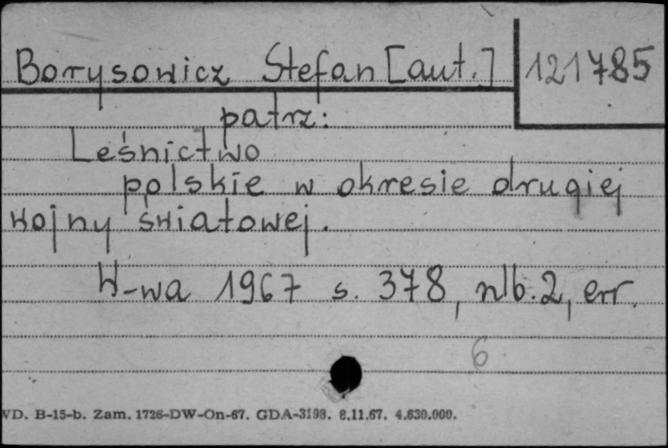 Borysowicz Stefan [aut.] 121785
patrz:
Leśnictwo
polskie w okresie drugiej
wojny światowej.
W-wa 1967 s. 378, nlb. 2, err.
6
VD. B-15-b. Zam. 1726-DW-On-67. GDA-3198. 8.11.67. 4.630.000.